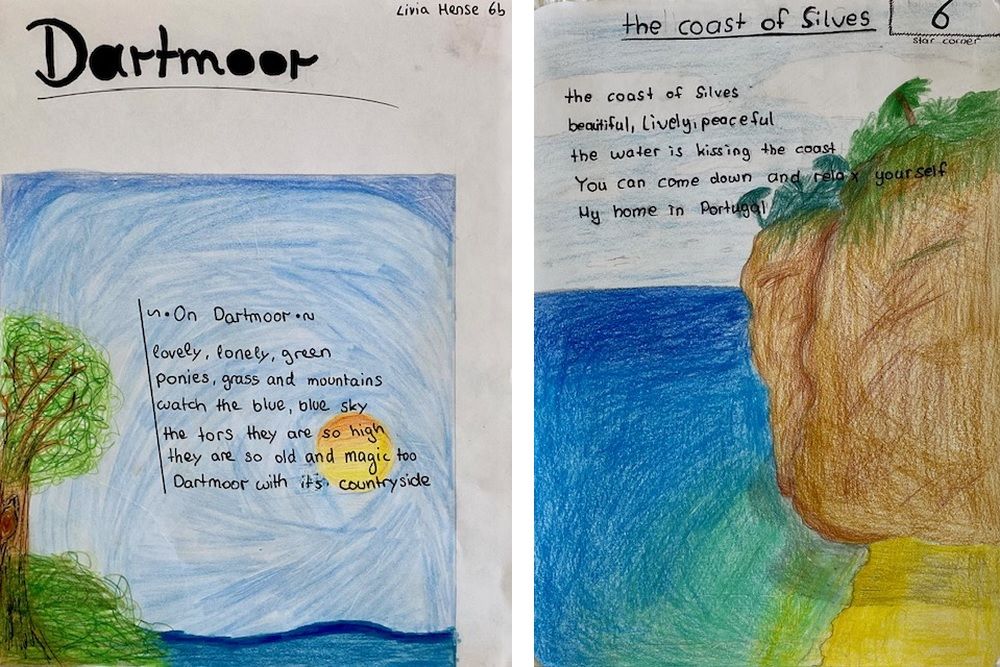 Livia Hense 6b
Dartmoor
~•On Dartmoor•~
lovely, lonely, green
ponies, grass and mountains
watch the blue, blue sky
the tors they are so high
they are so old and magic too
Dartmoor with it's countryside
the coast of Silves
6
star corner
the coast of Silves
beautiful, lively, peaceful
the water is kissing the coast
You can come down and relax yourself
My home in Portugal